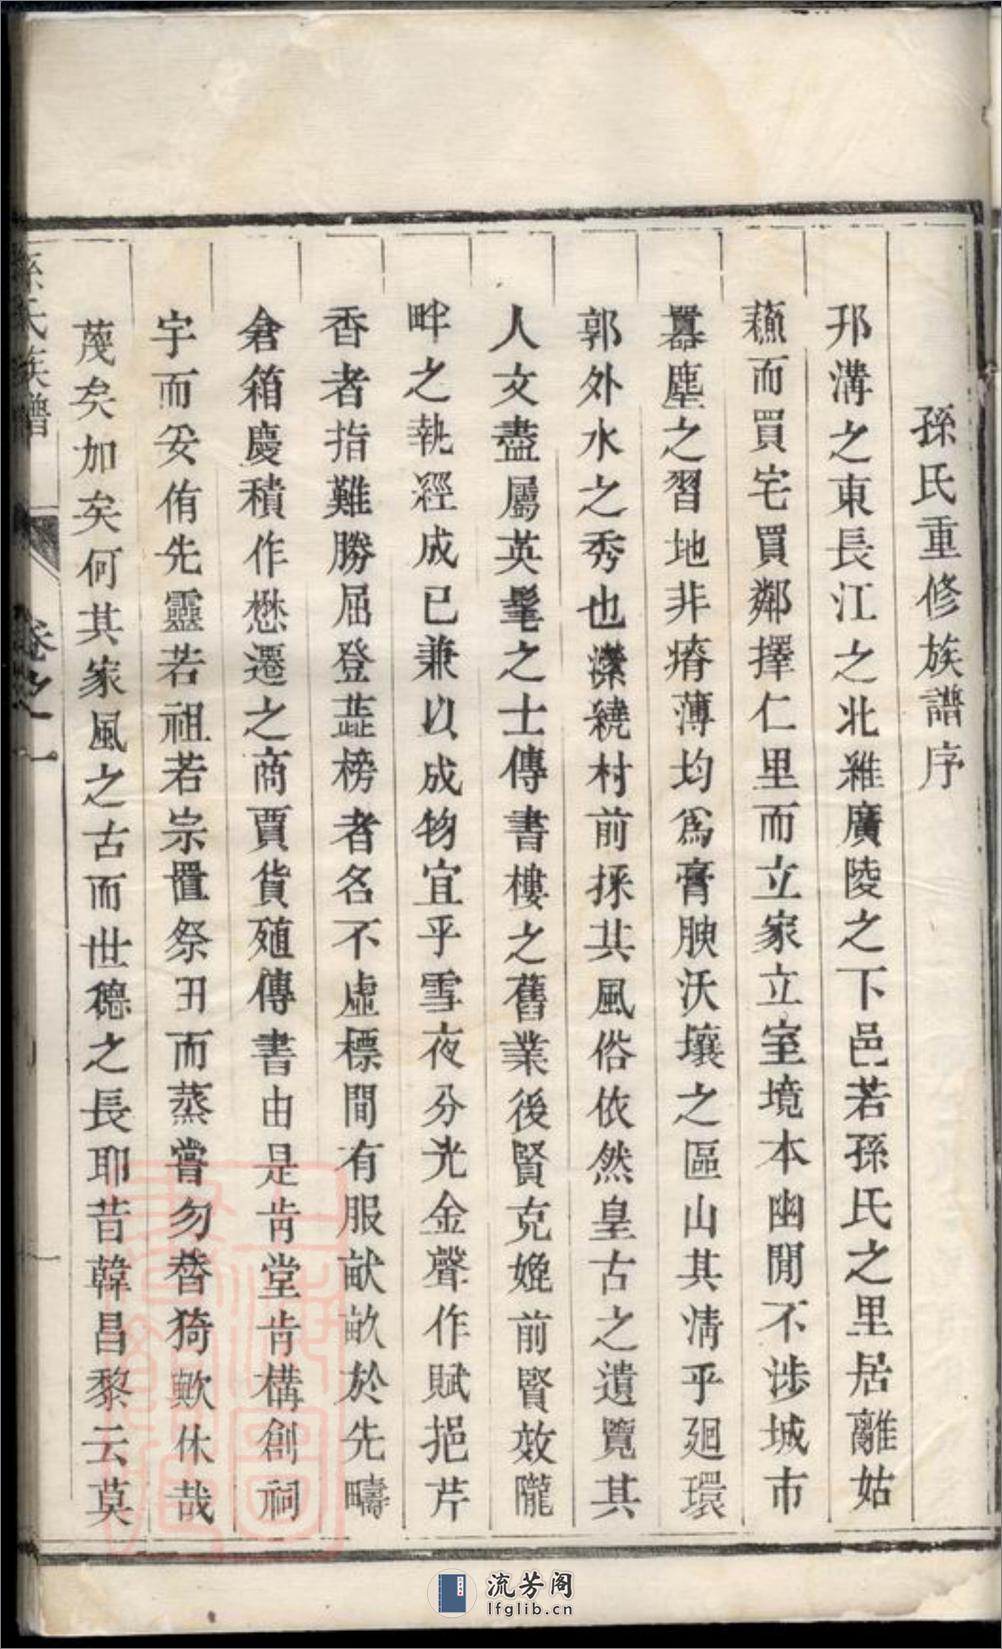 孫氏重修族譜序
邗溝之東長江之北維廣陵之下邑若孫氏之里居離姑
蘓而買宅買鄰擇仁里而立家立室境本幽閒不涉城市
囂塵之習地非瘠薄均為膏腴沃壤之區山其凊乎廻環
郭外水之秀也瀠繞村前採其風俗依然皇古之遺覽其
人文盡屬英髦之士傳書樓之舊業後賢克媲前賢效隴
畔之執經成已兼以成物宜乎雪夜分光金聲作賦挹芹
香者指難勝屈登蕋榜者名不虛標間有服畎畝於先疇
倉箱慶積作懋遷之商賈貨殖傳書由是肯堂肯構創祠
宇而妥侑先靈若祖若宗置祭田而蒸嘗勿替猗歟休哉
蔑矣加矣何其家風之古而世德之長耶昔韓昌黎云莫
孫氏族譜
卷之一
流芳阁
lfglib.cn